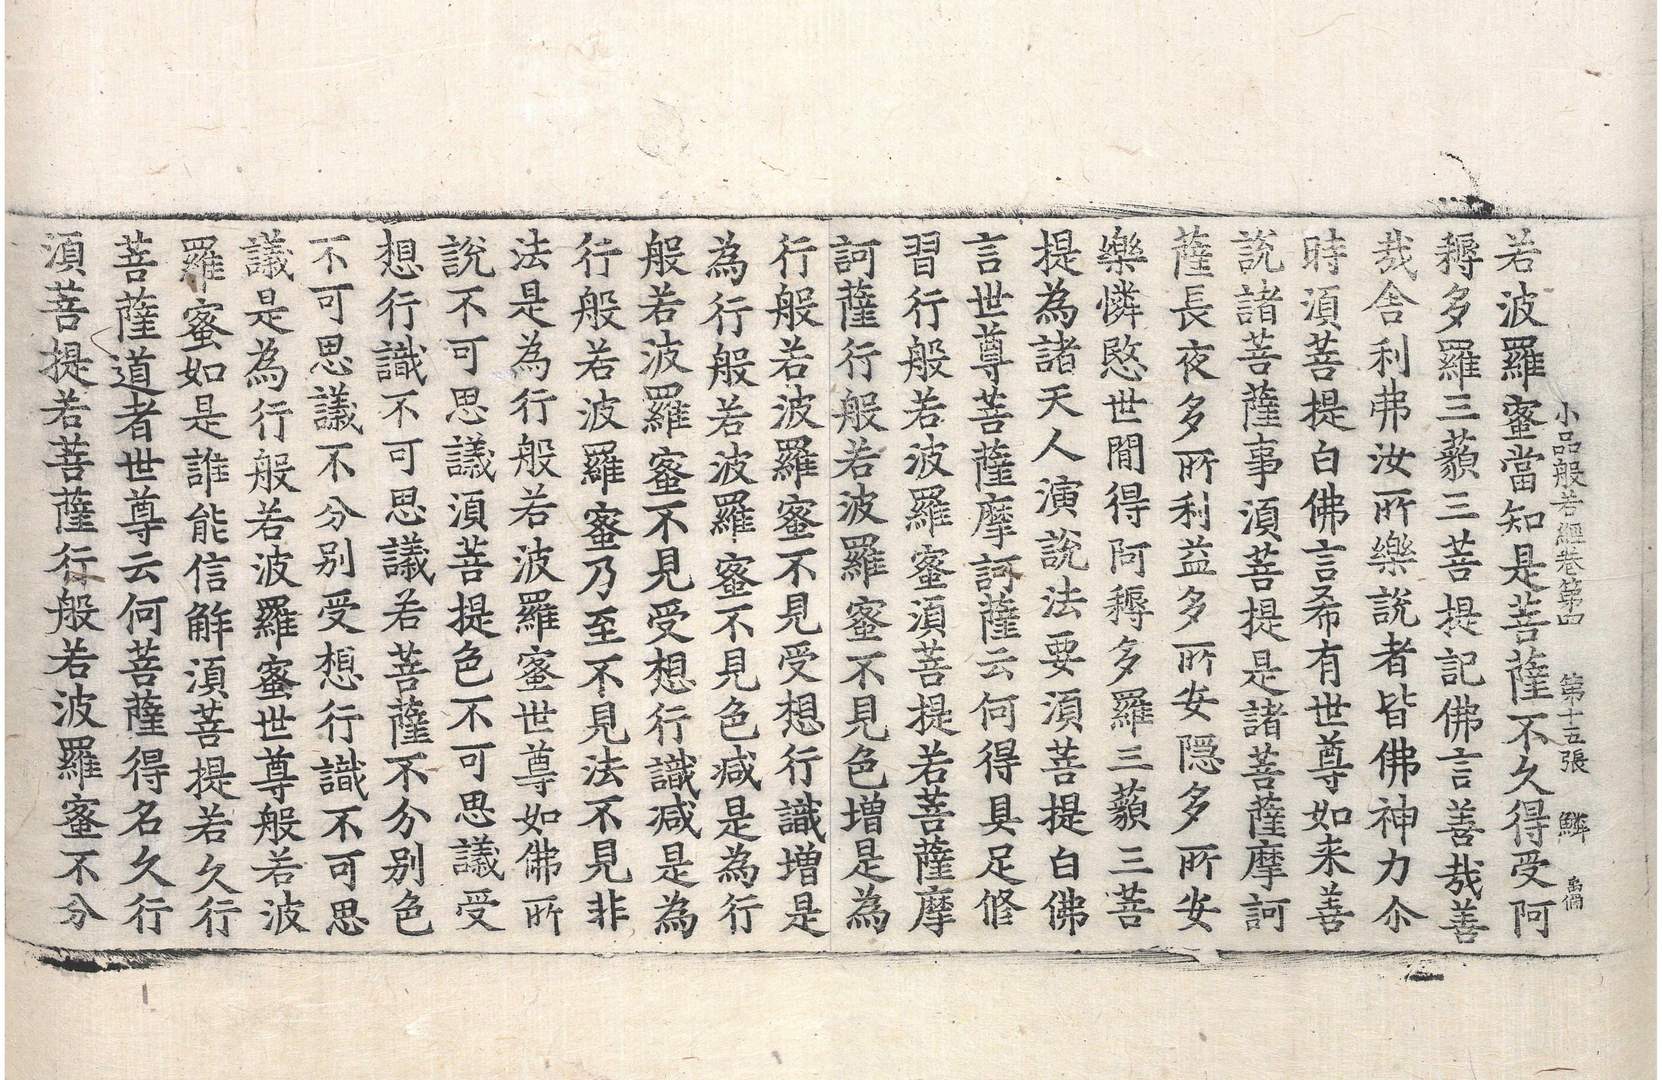 小品般若經卷第四 第十五張 鱗
若波羅蜜當知是菩薩不久得受阿
耨多羅三藐三菩提記佛言善哉善
哉舍利弗汝所樂說者皆佛神力尒
時須菩提白佛言希有世尊如来善
說諸菩薩事須菩提是諸菩薩摩訶
薩長夜多所利益多所安隱多所安
樂憐愍世間得阿耨多羅三藐三菩
提為諸天人演說法要須菩提白佛
言世尊菩薩摩訶薩云何得具足修
習行般若波羅蜜須菩提若菩薩摩
訶薩行般若波羅蜜不見色增是為
行般若波羅蜜不見受想行識增是
為行般若波羅蜜不見色減是為行
般若波羅蜜不見受想行識减是為
行般若波羅蜜乃至不見法不見非
法是為行般若波羅蜜世尊如佛所
說不可思議須菩提色不可思議受
想行識不可思議若菩薩不分別色
不可思議不分別受想行識不可思
議是為行般若波羅蜜世尊般若波
羅蜜如是誰能信解須菩提若久行
菩薩道者世尊云何菩薩得名久行
須菩提若菩薩行般若波羅蜜不分